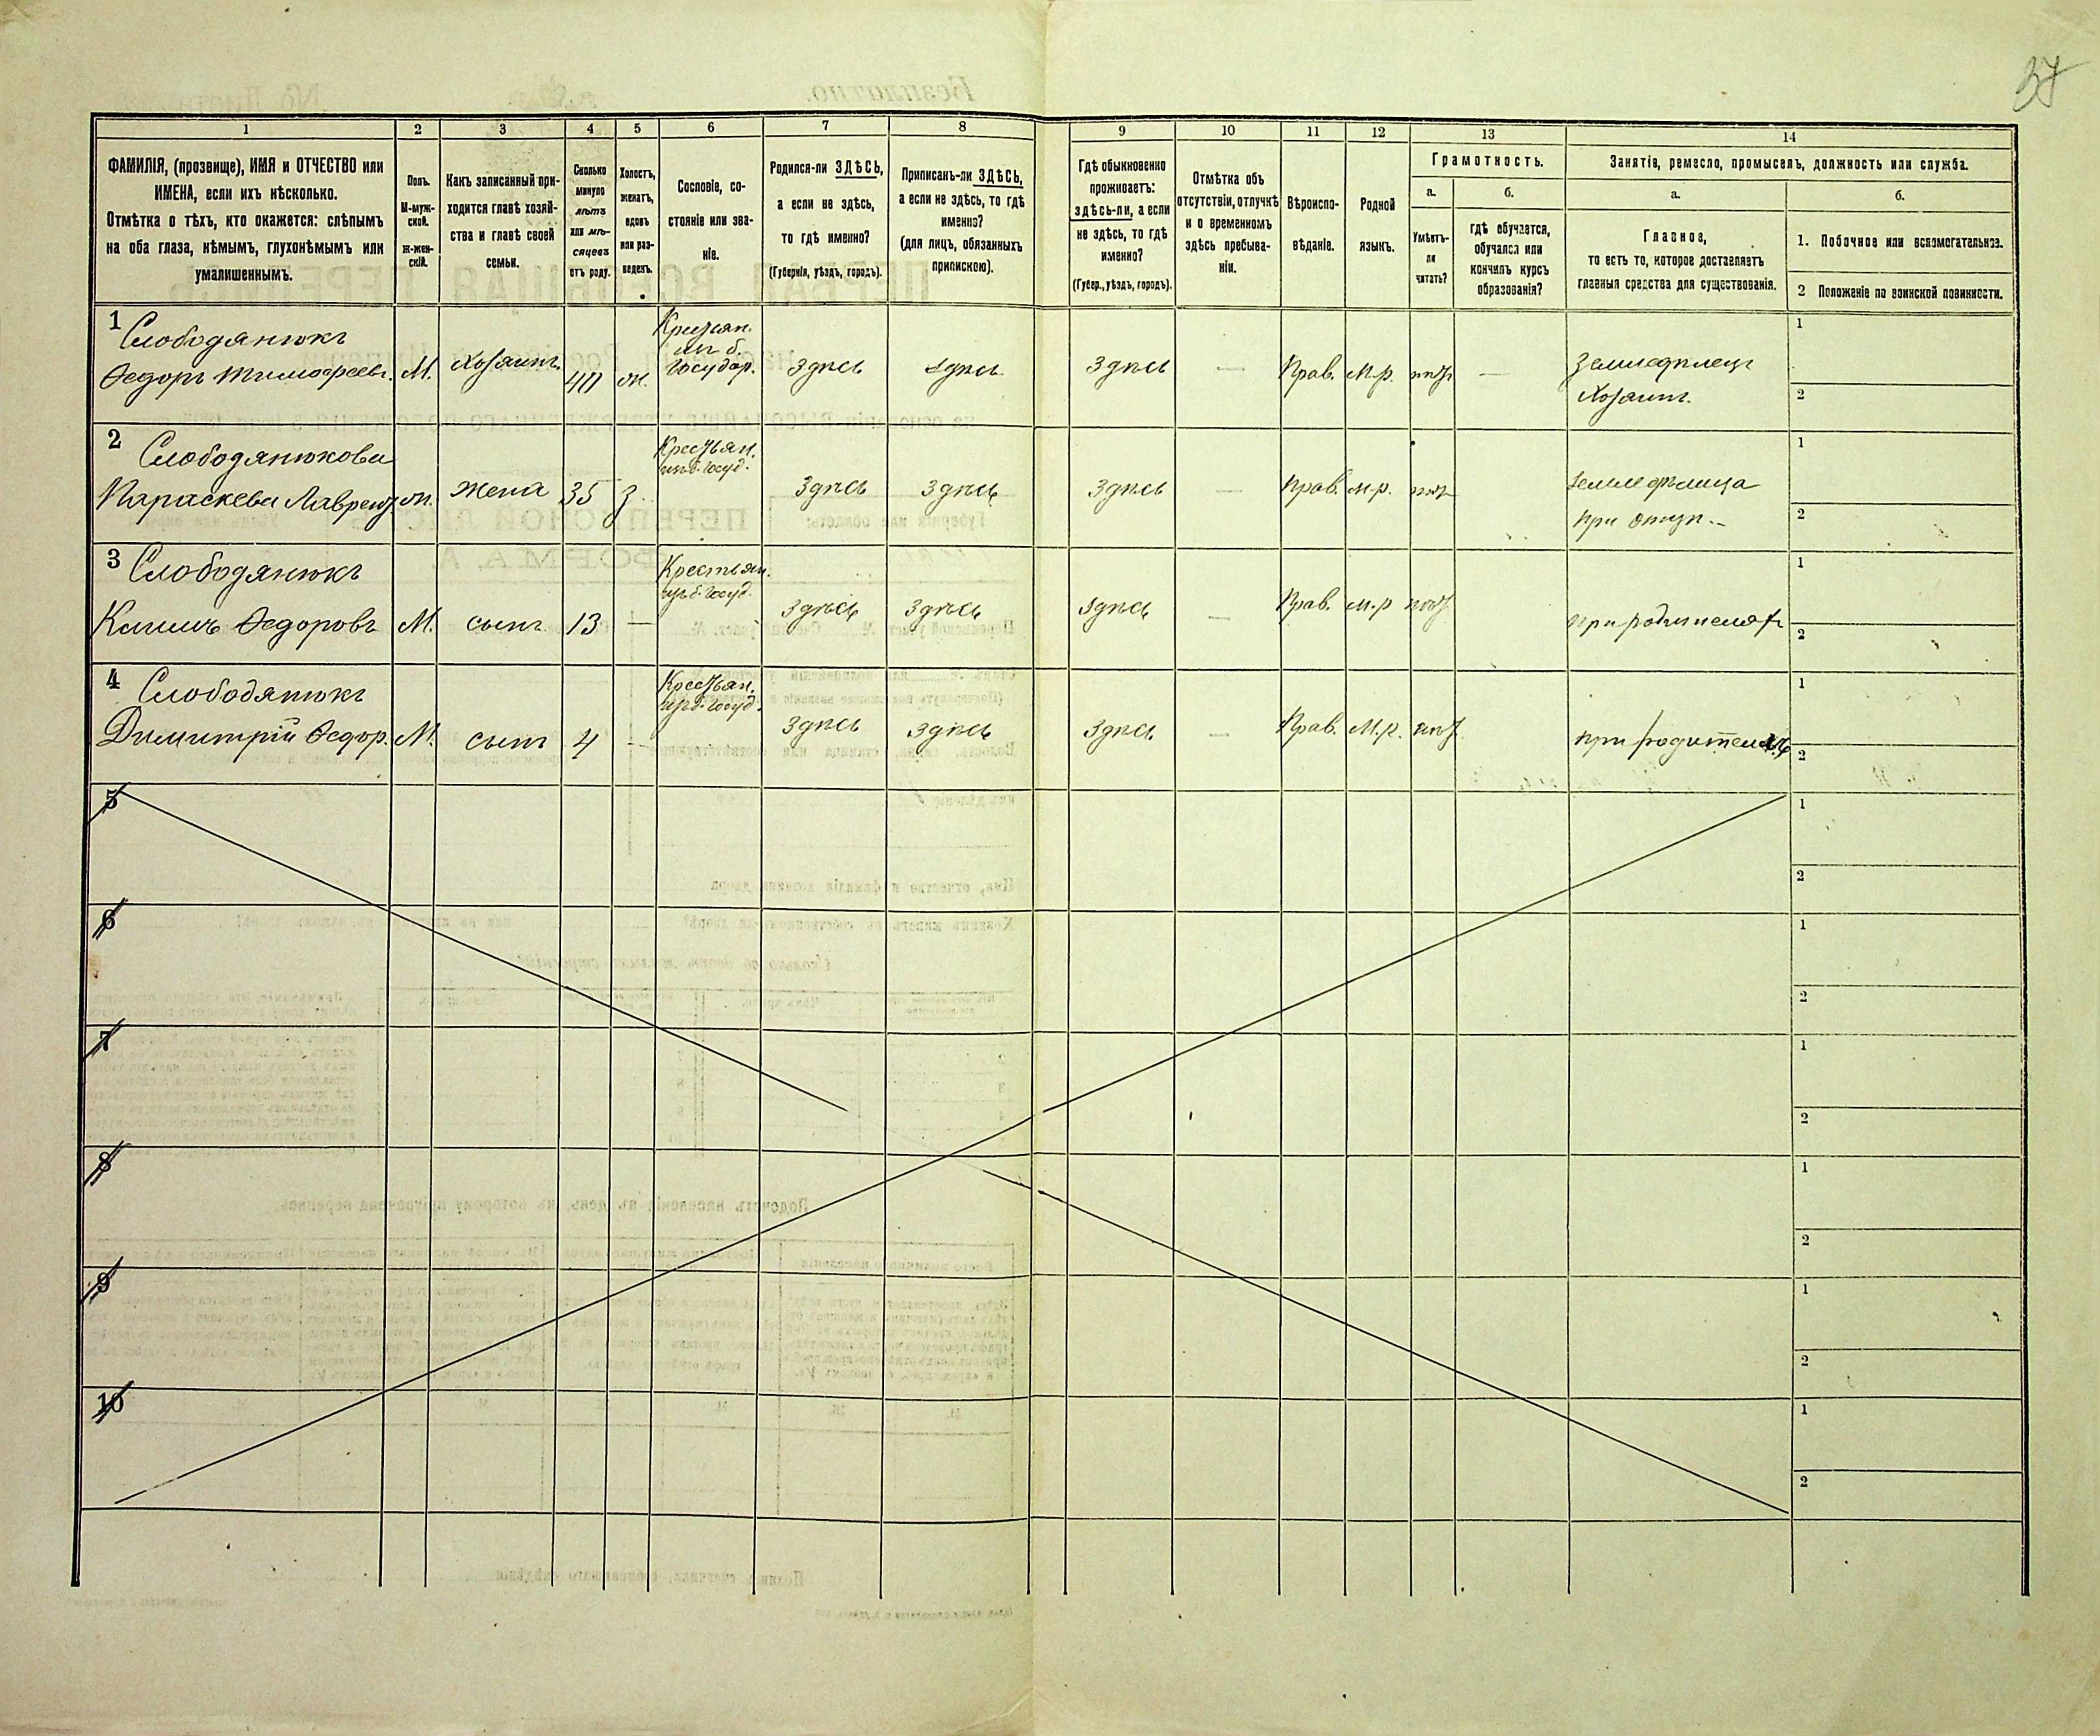 37
1 2 3 4 5 6 7 8 9 10 11 12 13 14
ФАМИЛІЯ, (прозвище), ИМЯ и ОТЧЕСТВО или
ИМЕНА, если ихъ нѣсколько.
Отмѣтка о тѣхъ, кто окажется: слѣпымъ
на оба глаза, нѣмымъ, глухонѣмымъ или
умалишеннымъ.
Полъ.
М-муж-
ской.
Ж-жен-
скій.
Какъ записанный при-
ходится главѣ хозяй-
ства и главѣ своей
семьи.
Сколько
минуло
лѣтъ
или мѣ-
сяцевъ
отъ роду.
Холостъ,
женатъ,
вдовъ
или раз-
веденъ.
Сословіе, со-
стояніе или зва-
ніе.
Родился-ли ЗДѢСЬ,
а если не здѣсь,
то гдѣ именно?
(Губернія, уѣздъ, городъ).
Приписанъ-ли ЗДѢСЬ,
а если не здѣсь, то гдѣ
именно?
(для лицъ, обязанныхъ
припискою).
Гдѣ обыкновенно
проживаетъ:
здѣсь-ли, а если
не здѣсь, то гдѣ
именно?
(Губер., уѣздъ, городъ).
Отмѣтка объ
отсутствіи, отлучкѣ
и о временномъ
здѣсь пребыва-
ніи.
Вѣроиспо-
вѣданіе.
Родной
языкъ.
Грамотность.
а.
Умѣетъ-
ли
читать?
б.
гдѣ обучается,
обучался или
кончилъ курсъ
образованія?
Занятіе, ремесло, промыселъ, должность или служба.
а.
Главное,
то есть то, которое доставляетъ
главныя средства для существованія.
б.
1. Побочное или вспомогательное.
2 Положеніе по воинской повинности.
1 Слободянюкъ
Ѳедоръ Тимофеевъ. М. Хозяинъ. 40 ж. Кресьян. из б. Государ. Здѣсь Здѣсь Здѣсь — Прав. М.р. — Земледѣлец Хозяинъ. 1 2
2 Слободянюкова
Параскева Лаврент ж. Жена 35 з. Кресьян. изъ б. Госуд. Здѣсь Здѣсь Здѣсь — Прав. М.р. при 1 2
3 Слободянюкъ
Ѳедоровъ М. сынъ 13 — Крестьян. изъ б. Госуд. Здѣсь Здѣсь Здѣсь — Прав. М.р при родителях 1 2
4 Слободянюкъ
Димитрій Ѳедор. М. сынъ 4 — Кресьян. из б. Госуд. Здѣсь Здѣсь Здѣсь — Прав. М.р. при родителяхъ 1 2
5 1 2
6 1 2
7 1 2
8 1 2
9 1 2
10 1 2